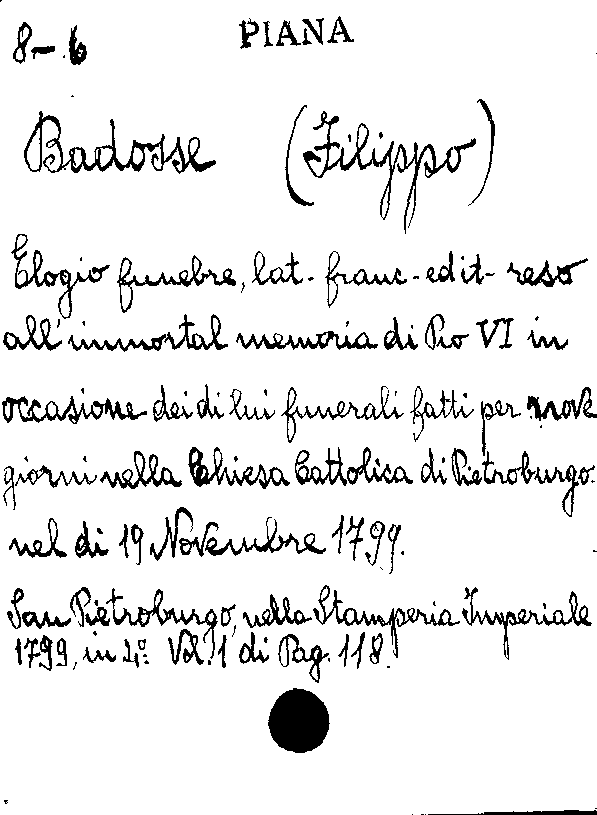 8-6 PIANA
Badosse (Filippo)
Elogio funebre, lat- franc- edit- reso
all'immortal memoria di Pio VI in
occasione dei di lui funerali fatti per nove
giorni nella Chiesa Cattolica di Pietroburgo
nel di 19 Novembre 1799.
San Pietroburgo, nella Stamperia Imperiale
1799, in 4º Vol. 1 di Pag. 118.